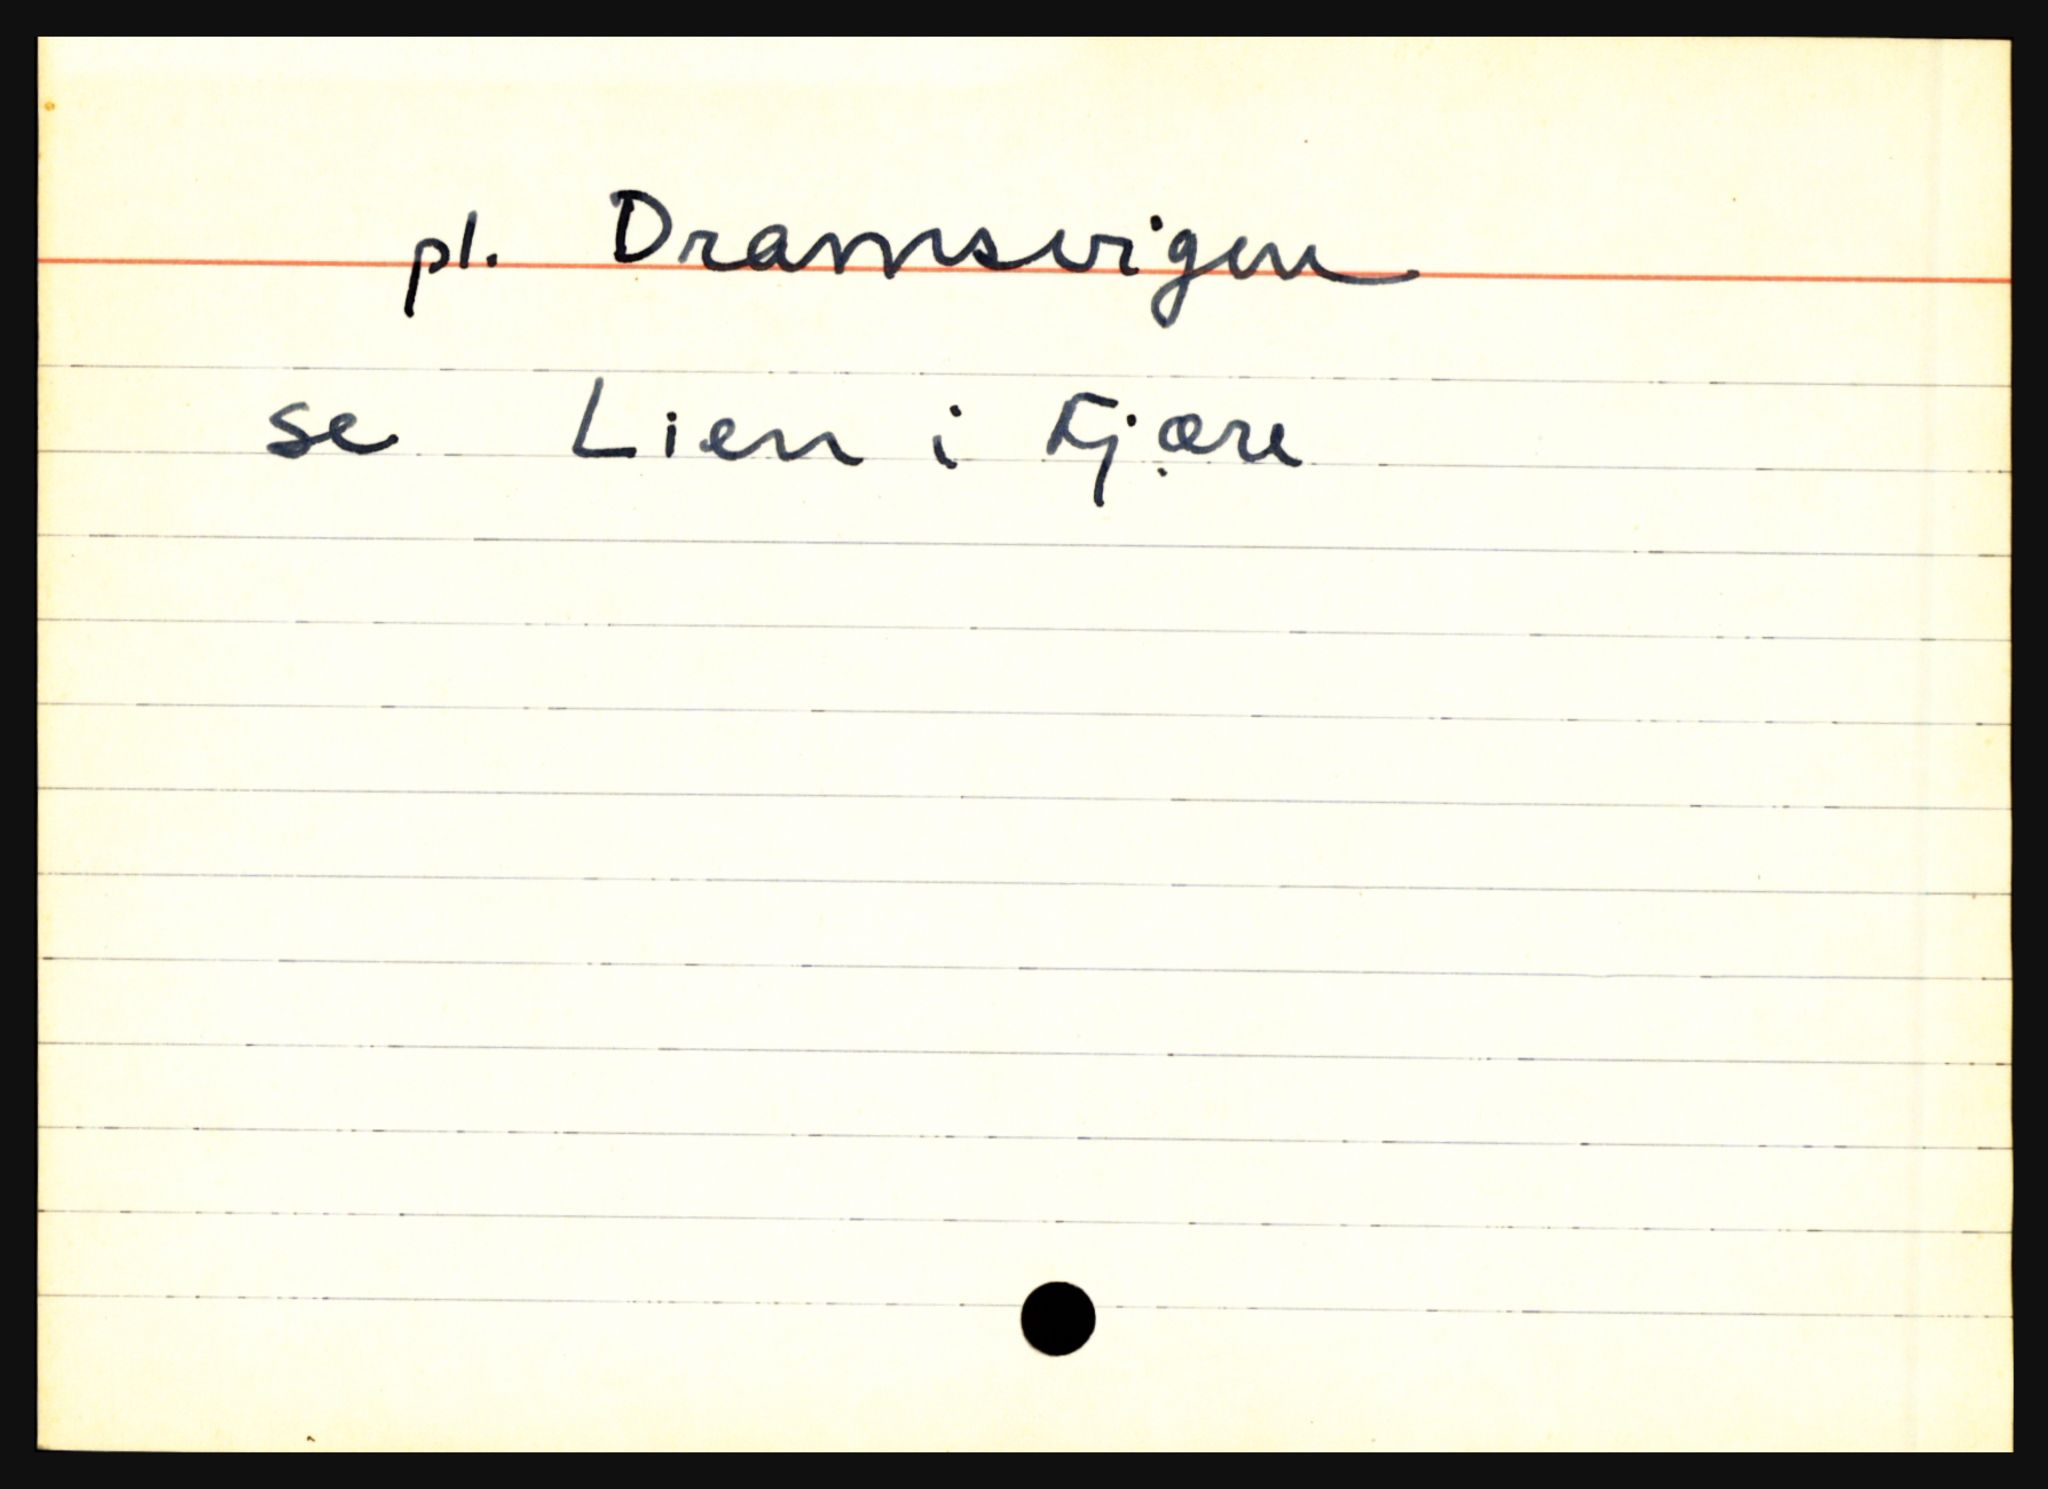 pl. Dramsvigen
se Lien i Fjære